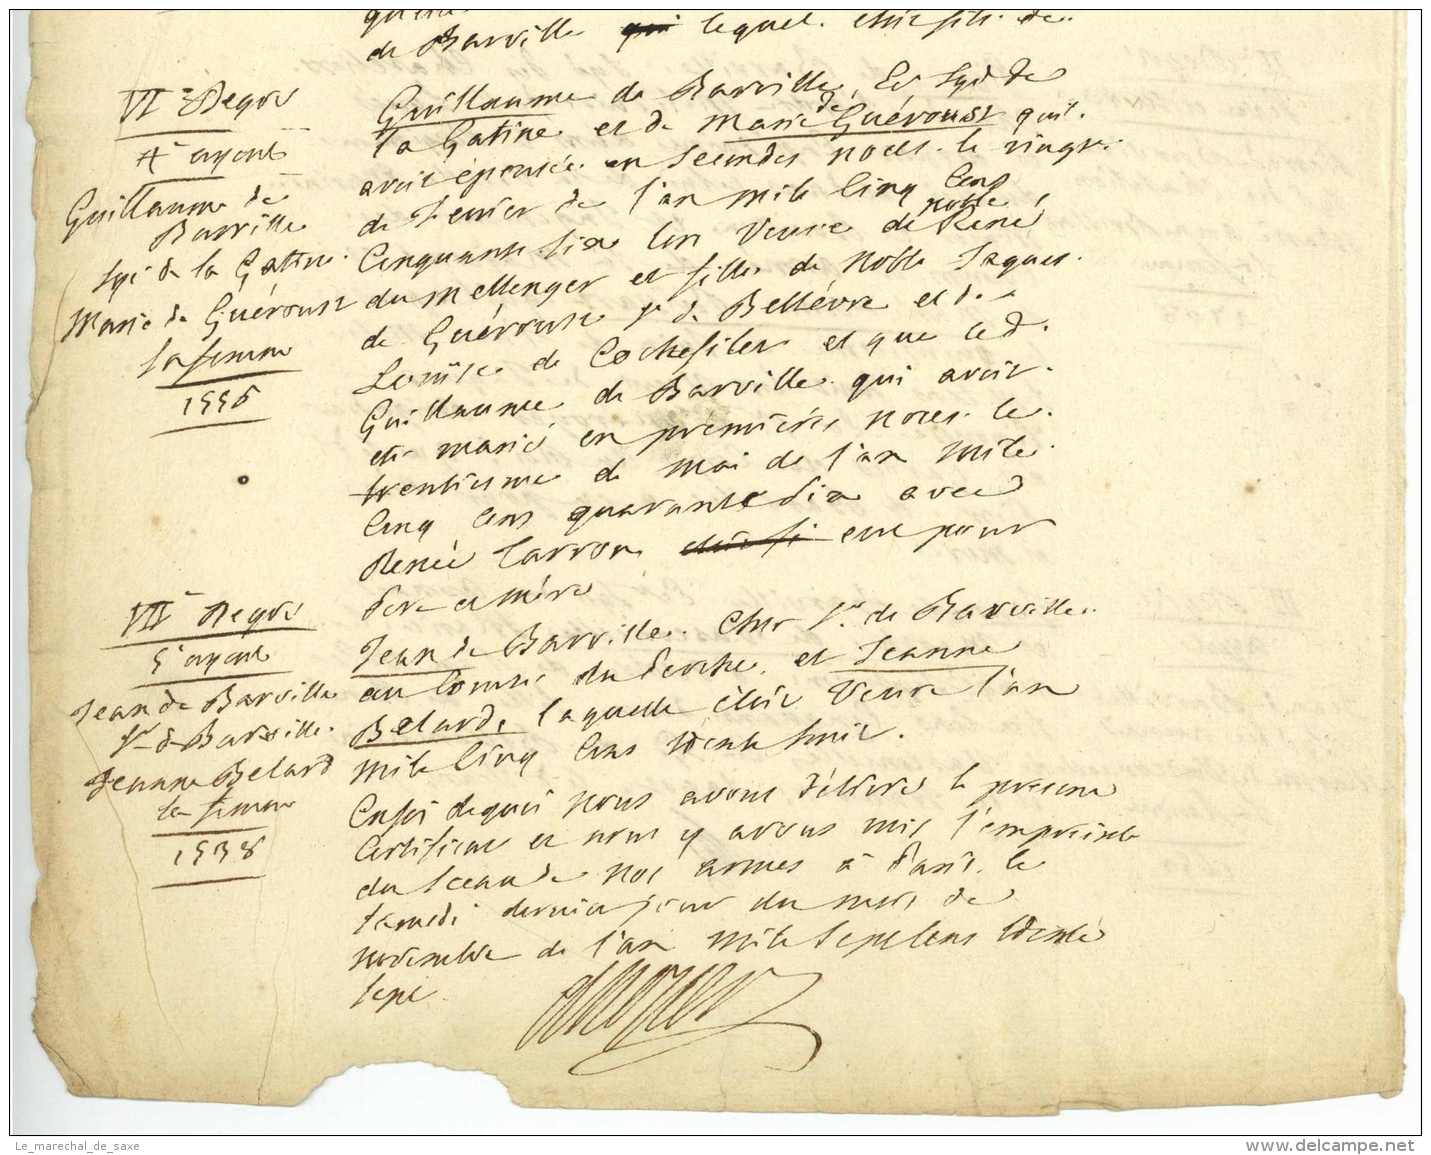 de Barville qui lequel. étoit fils de
VI.e Degré
4.e ayeul
Guillaume de
Barville
Sgr de la Gatine.
Marie de Guéroust
sa femme
1556
Guillaume de Barville, Ec. Sgr de
la Gatine et de Marie de Guéroust qu'il
avoit épousée en secondes noces le vingt
de fevrier de l'an mile cinq cens
Cinquante six lors veuve de noble René
du Mellenger et fille de noble Jaques
de Guéroust Sr de Bellévre et de
Louise de Cochefilet et que led.
Guillaume de Barville qui avoit
eté marié en prémiéres noces le
trentieme de mai de l'an mile
cinq cens quarante dix avec
Renée Carron eut pour
pere et mére
VII.e Degré
5.e ayeul
Jean de Barville
Sr de Barville.
Jeanne Belard
sa femme
1538
Jean de Barville. Cher Sr. de Barville
au Comté du Perche. et Jeanne
Belarde laquelle étoit veuve l'an
mile cinq cens trente huit.
En foi de quoi nous avons délivré le present
Certificat et nous y avons mis l'empreinte
du Sceau de nos armes à Paris. le
samedi dernier jour du mois de
novembre de l'an mile sept cens trente
sept.
d'hozier
Le_marechal_de_saxe
www.delcampe.net